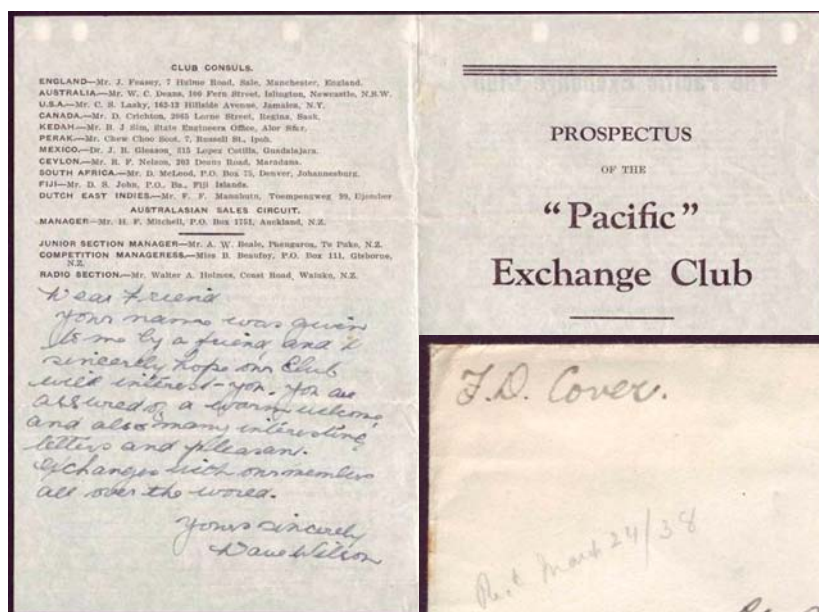 CLUB CONSULS.
ENGLAND—Mr. J. Feasey, 7 Hulme Road, Sale, Manchester, England.
AUSTRALIA—Mr. W. C. Deans, 100 Fern Street, Islington, Newcastle, N.S.W.
U.S.A.—Mr. C. S. Lasky, 162-12 Hillside Avenue, Jamaica, N.Y.
CANADA.—Mr. D. Crichton, 2065 Lorne Street, Regina, Sask.
KEDAH—Mr. B. J Sim, State Engineers Office, Alor Star.
PERAK—Mr. Chew Choo Soot, 7, Russell St., Ipoh.
MEXICO—Dr. J. B. Gleason, 815 Lopez Cotilla, Guadalajara.
CEYLON—Mr. R. F. Nelson, 203 Deans Road, Maradana.
SOUTH AFRICA—Mr. D. McLeod, P.O. Box 75, Denver, Johannesburg.
FIJI—Mr. D. S. John, P.O., Ba., Fiji Islands.
DUTCH EAST INDIES—Mr. F. F. Toempengweg 99, Djember
AUSTRALASIAN SALES CIRCUIT.
MANAGER—Mr. H. F. Mitchell, P.O. Box 1751, Auckland, N.Z.
JUNIOR SECTION MANAGER—Mr. A. W. Beale, Te Puke, N.Z.
COMPETITION MANAGERESS—Miss B. Beaufoy, P.O. Box 111, Gisborne,
N.Z.
RADIO SECTION.—Mr. Walter A. Holmes, Coast Road, Waiuku, N.Z.
Dear Friend
Your name was given
to me by a friend, and I
sincerely hope our Club
will interest you. You are
assured of a warm welcome
and also many interesting
letters and pleasan.
exchanges with our members
all over the world.
Yours sincerely
Dave Wilson
PROSPECTUS
OF THE
"Pacific"
Exchange Club
F.D. Cover.
Rec'd March 24/38